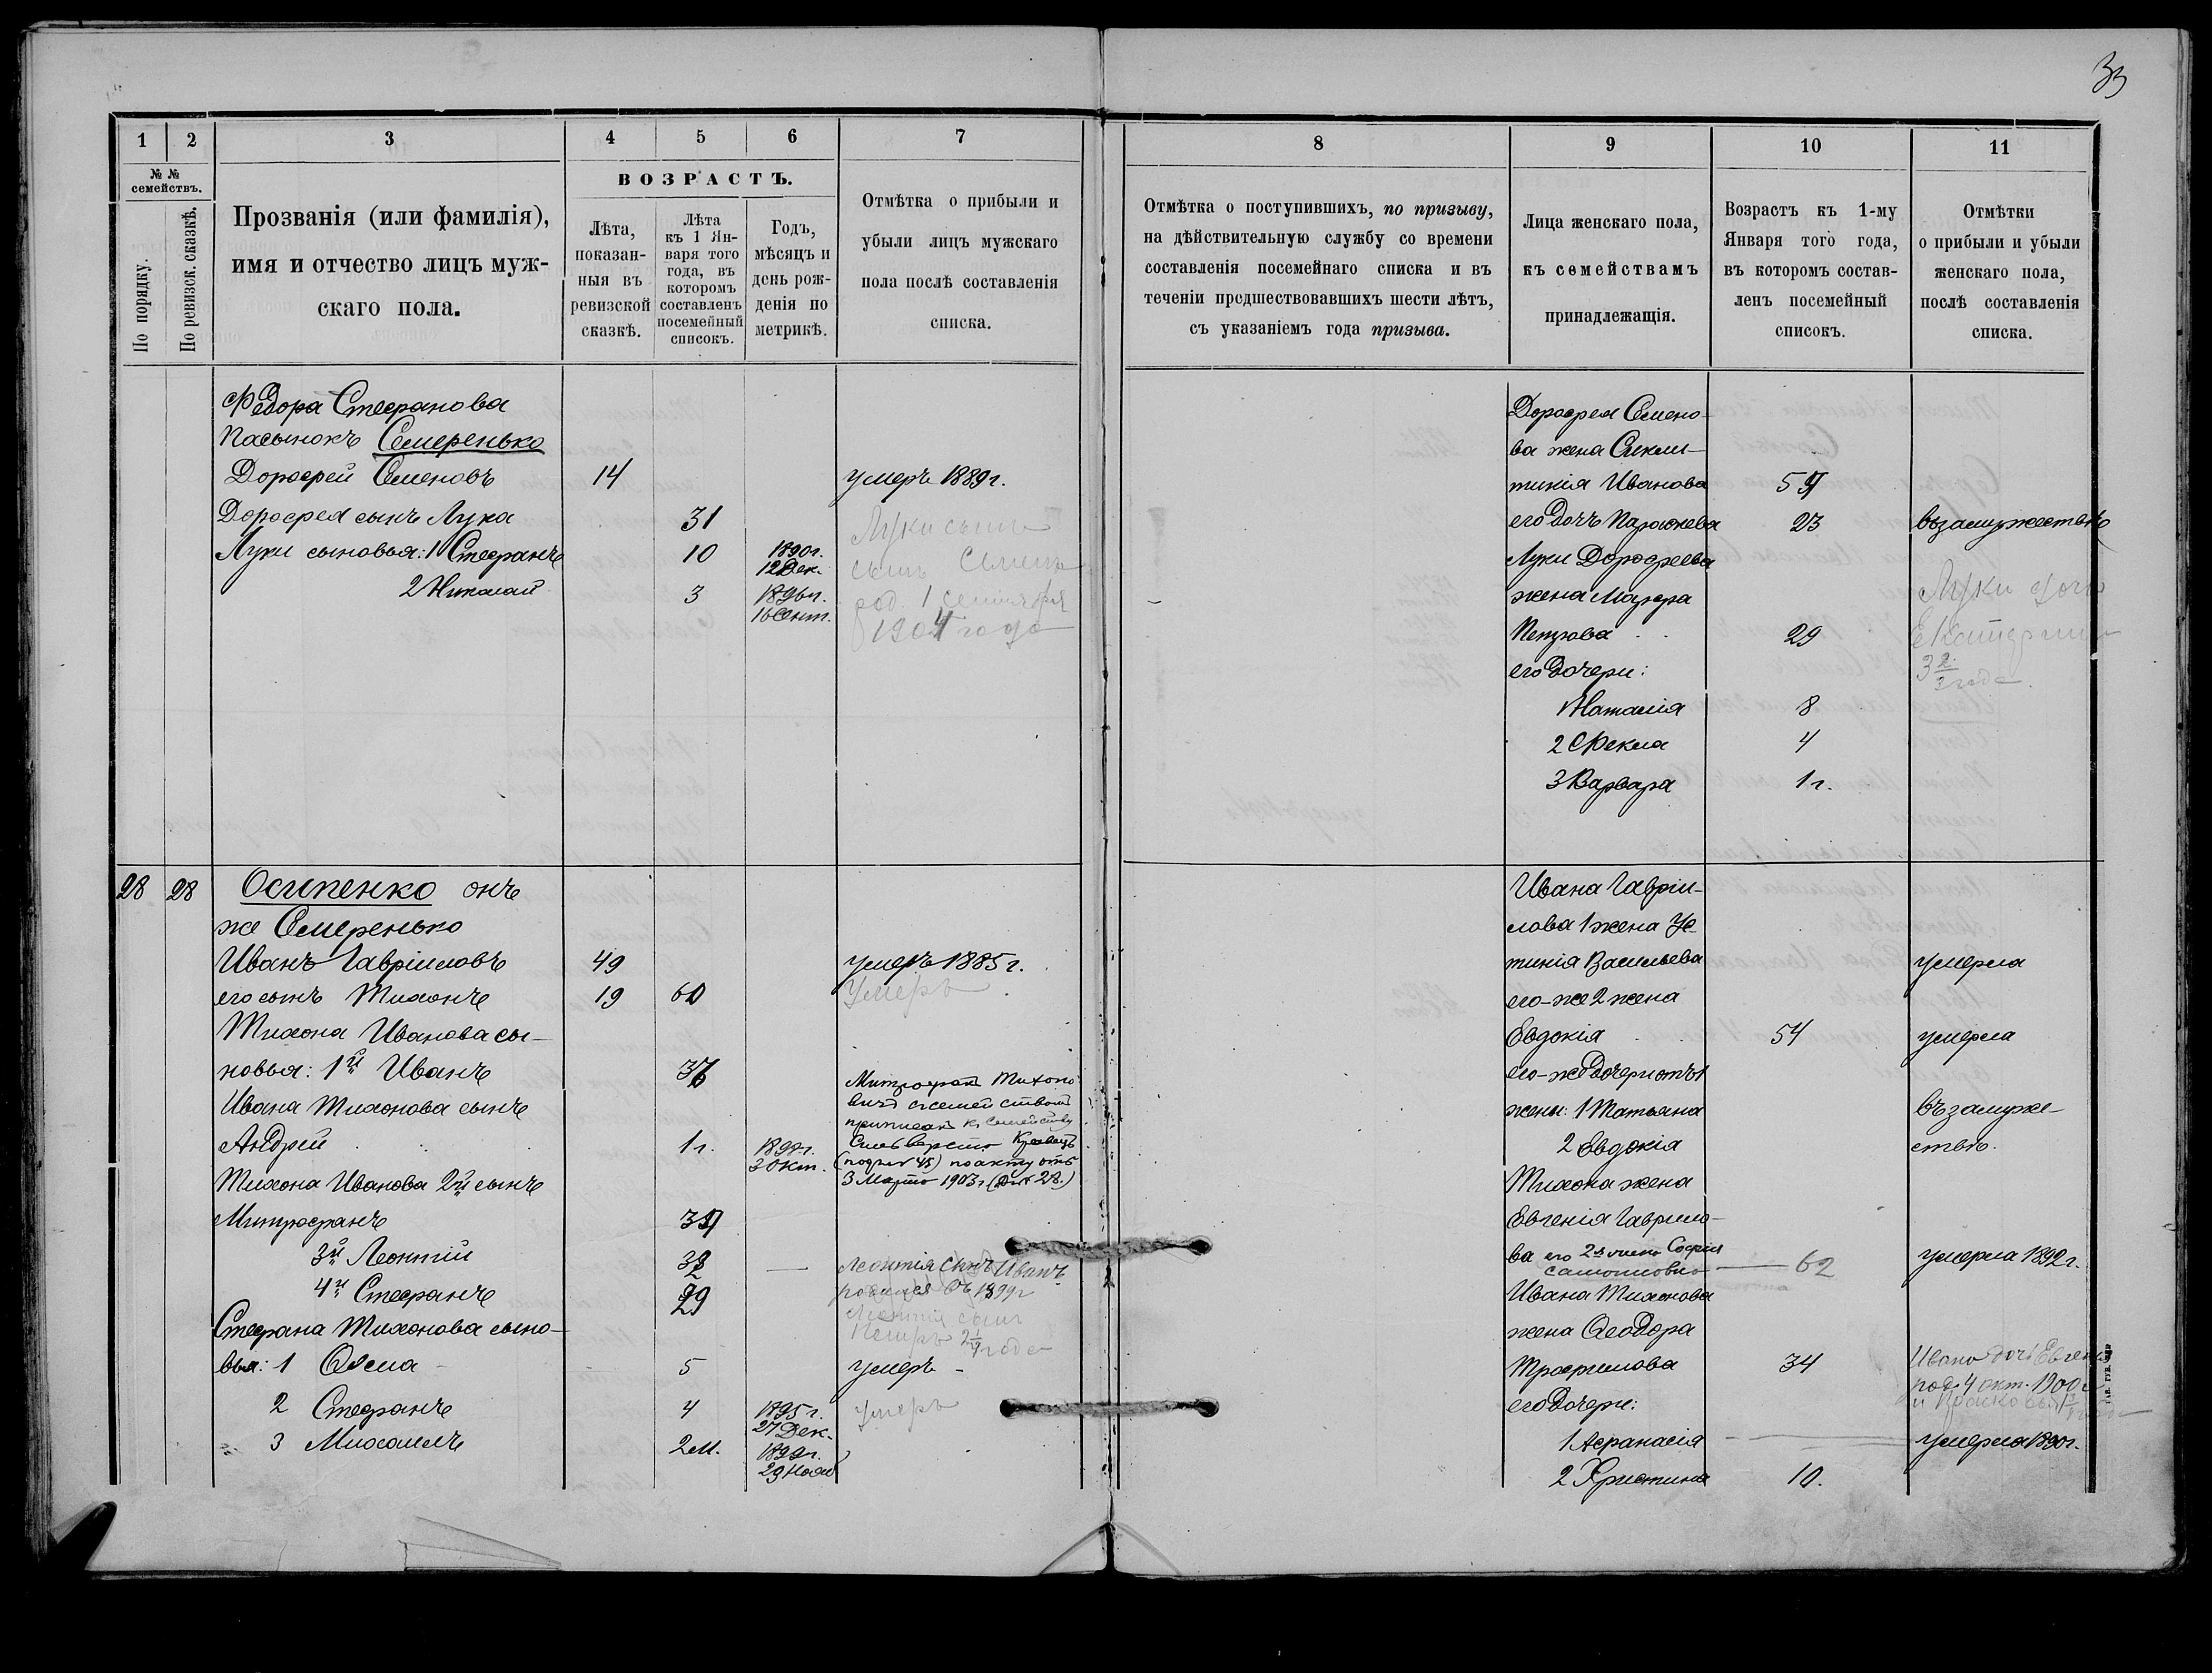 33
1
2
3
4
5
6
7
№ №
семействъ.
По порядку.
По ревизск. сказкѣ.
Прозванія (или фамилія),
имя и отчество лицъ муж-
скаго пола.
ВОЗРАСТЪ.
Лѣта,
показан-
ныя въ
ревизской
сказкѣ.
Лѣта
къ 1 Ян-
варя того
года, въ
которомъ
составленъ
посемейный
списокъ.
Годъ,
мѣсяцъ и
день рож-
денія по
метрикѣ.
Отмѣтка о прибыли и
убыли лицъ мужскаго
пола послѣ составленія
списка.
Федора Стефанова
пасынокъ Семеренько
Дорофей Семеновъ 14 умеръ 1889 г.
Дорофея сынъ Лука 31
Луки сыновья: 1 Стефанъ 10 1890 г.
12 Дек.
2 Николай 3 1896 г.
16 Сент.
Луки сынъ
сынъ Семенъ
род. 1 сентября
1904 года
28 28 Осипенко онъ
же Семеренько
Иванъ Гавріиловъ 49 умеръ 1885 г.
его сынъ Тихонъ 19 60 Умеръ
Тихона Иванова сы-
новья: 1й Иванъ 36
Ивана Тихонова сынъ
Андрей 1 г. 1898 г.
3 Окт.
Митрофанъ Тихоно
вичъ с семействомъ
приписанъ къ семейству
Сильверста Кравецъ
(под № 45) по акту отъ
3 Марта 1903 г.
Тихона Иванова 2й сынъ
Митрофанъ
3й Леонтій
4й Стефанъ 29
Леонтія сынъ Иванъ
родился 1899 г
Леонтія сынъ
Петръ 2 1/4 года
Стефана Тихонова сыно-
вья: 1 Фома 5 умеръ
2 Стефанъ 4 1895 г.
27 Дек.
умеръ
3 Михаилъ 2 м. 1899 г.
29 Нояб
8
9
10
11
Отмѣтка о поступившихъ, по призыву,
на дѣйствительную службу со времени
составленія посемейнаго списка и въ
теченіи предшествовавшихъ шести лѣтъ,
съ указаніемъ года призыва.
Лица женскаго пола,
къ семействамъ
принадлежащія.
Возрастъ къ 1-му
Января того года,
въ которомъ состав-
ленъ посемейный
списокъ.
Отмѣтки
о прибыли и убыли
женскаго пола,
послѣ составленія
списка.
Дорофея Семено-
ва жена Сикли-
тикія Иванова
его дочь Параскева 23 въ замужествѣ
Луки Дорофеева
жена Марфа
Петрова 29
Луки дочь
Екатерина
3 2/3 года
его дочери:
1 Наталія 8
2 Фекла 4
3 Варвара 1 г.
Ивана Гавріи-
лова 1 жена Ус-
тинія Васильева умерла
его-же 2 жена
Евдокія 54 умерла
его-же дочери отъ 1
жены: 1 Татьяна въ замуже-
2 Евдокія ствѣ.
Тихона жена
Евгенія Гаврило-
ва его 2я жена Софія
Самойловна 62 умерла 1892 г.
Ивана Тихонова
жена Феодора
Трофимова 34
Ивана дочь Евгенія
род. 4 окт. 1900 г
его дочери:
1 Афанасія умерла 1890 г.
2 Христина 10.